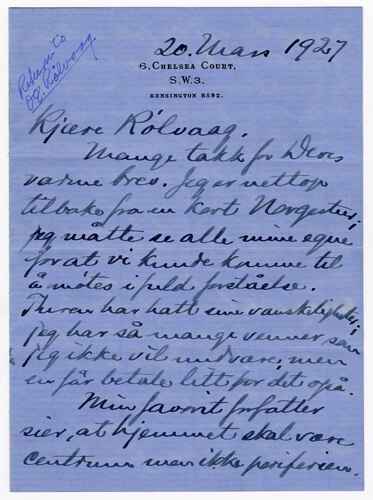 Return to
OE. Rölvaag
20. Mars 1927
6, CHELSEA COURT,
S.W.3.
KENSINGTON 8592.
Kjære Rölvaag.
Mange takk for Deres
varme brev. Jeg er nettop
tilbake fra en kort Norgestur,
jeg måtte se alle mine egne
for at vi kunde komme til
å mötes i fuld forståelse.
Turen har hatt sine vanskeligheter;
jeg har så mange venner som
jeg ikke vil undvære, men
en får betale litt for det også.
Min favorit forfatter
sier, at hjemmet skal være
centrum men ikke periferien.